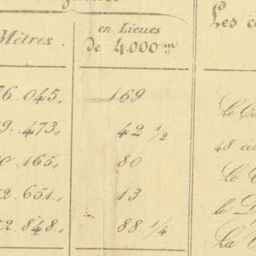 Mètres. en Lieues de 4.000 m Les c
76.045. 169 Le C
9.473. 42 1/2 48 c
0.165. 80 Le
2.651. 13 le D
2.848. 88 1/4 La